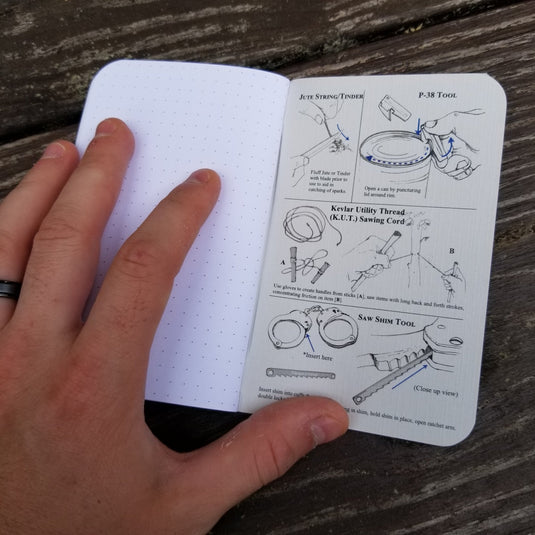 JUTE STRING/TINDER
Fluff Jute or Tinder
with blade prior to
use to aid in
catching of sparks.
P-38 TOOL
Open a can by puncturing
lid around rim.
KEVLAR UTILITY THREAD
(K.U.T.) SAWING CORD
A
B
Use gloves to create handles from sticks [A], saw items with long back and forth strokes,
concentrating friction on item [B]
SAW SHIM TOOL
*Insert here
(Close up view)
Insert shim into cuffs
double lock
in shim, hold shim in place, open ratchet arm.